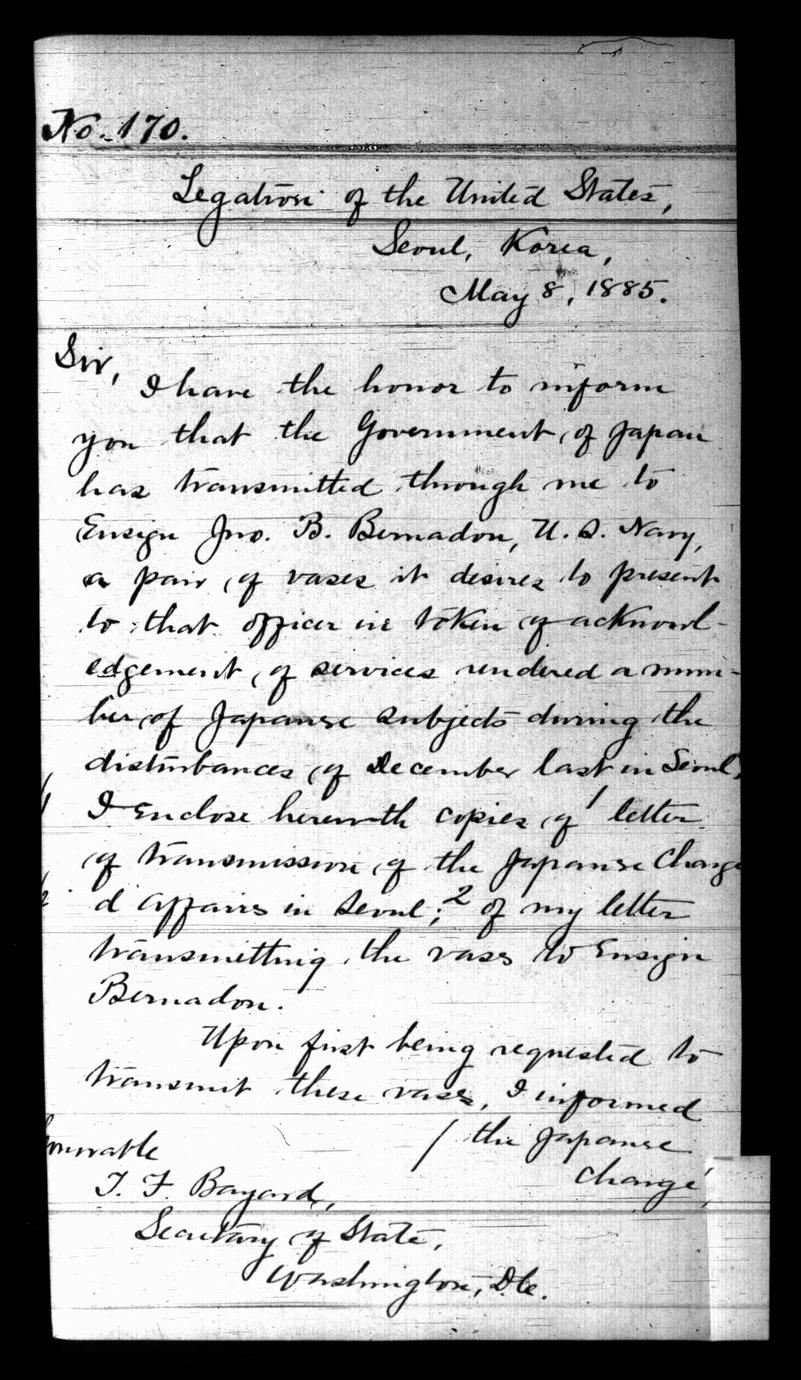 No. 170.
Legation of the United States,
Seoul, Korea,
May 8, 1885.
Sir,
I have the honor to inform
you that the Government of Japan
has transmitted through me to
Ensign Jno. B. Bernadou, U. S. Navy,
a pair of vases it desires to present
to that officer in token of acknowl-
edgement of services rendered a num-
ber of Japanese subjects during the
disturbances of December last in Seoul,
I enclose herewith copies of 1 letter
of transmission of the Japanese Charge
d'Affaires in Seoul; 2 of my letter
transmitting the vases to Ensign
Bernadou.
Upon first being requested to
transmit these vases, I informed
/ the Japanese
Chargé,
T. F. Bayard,
Secretary of State,
Washington, D.C.